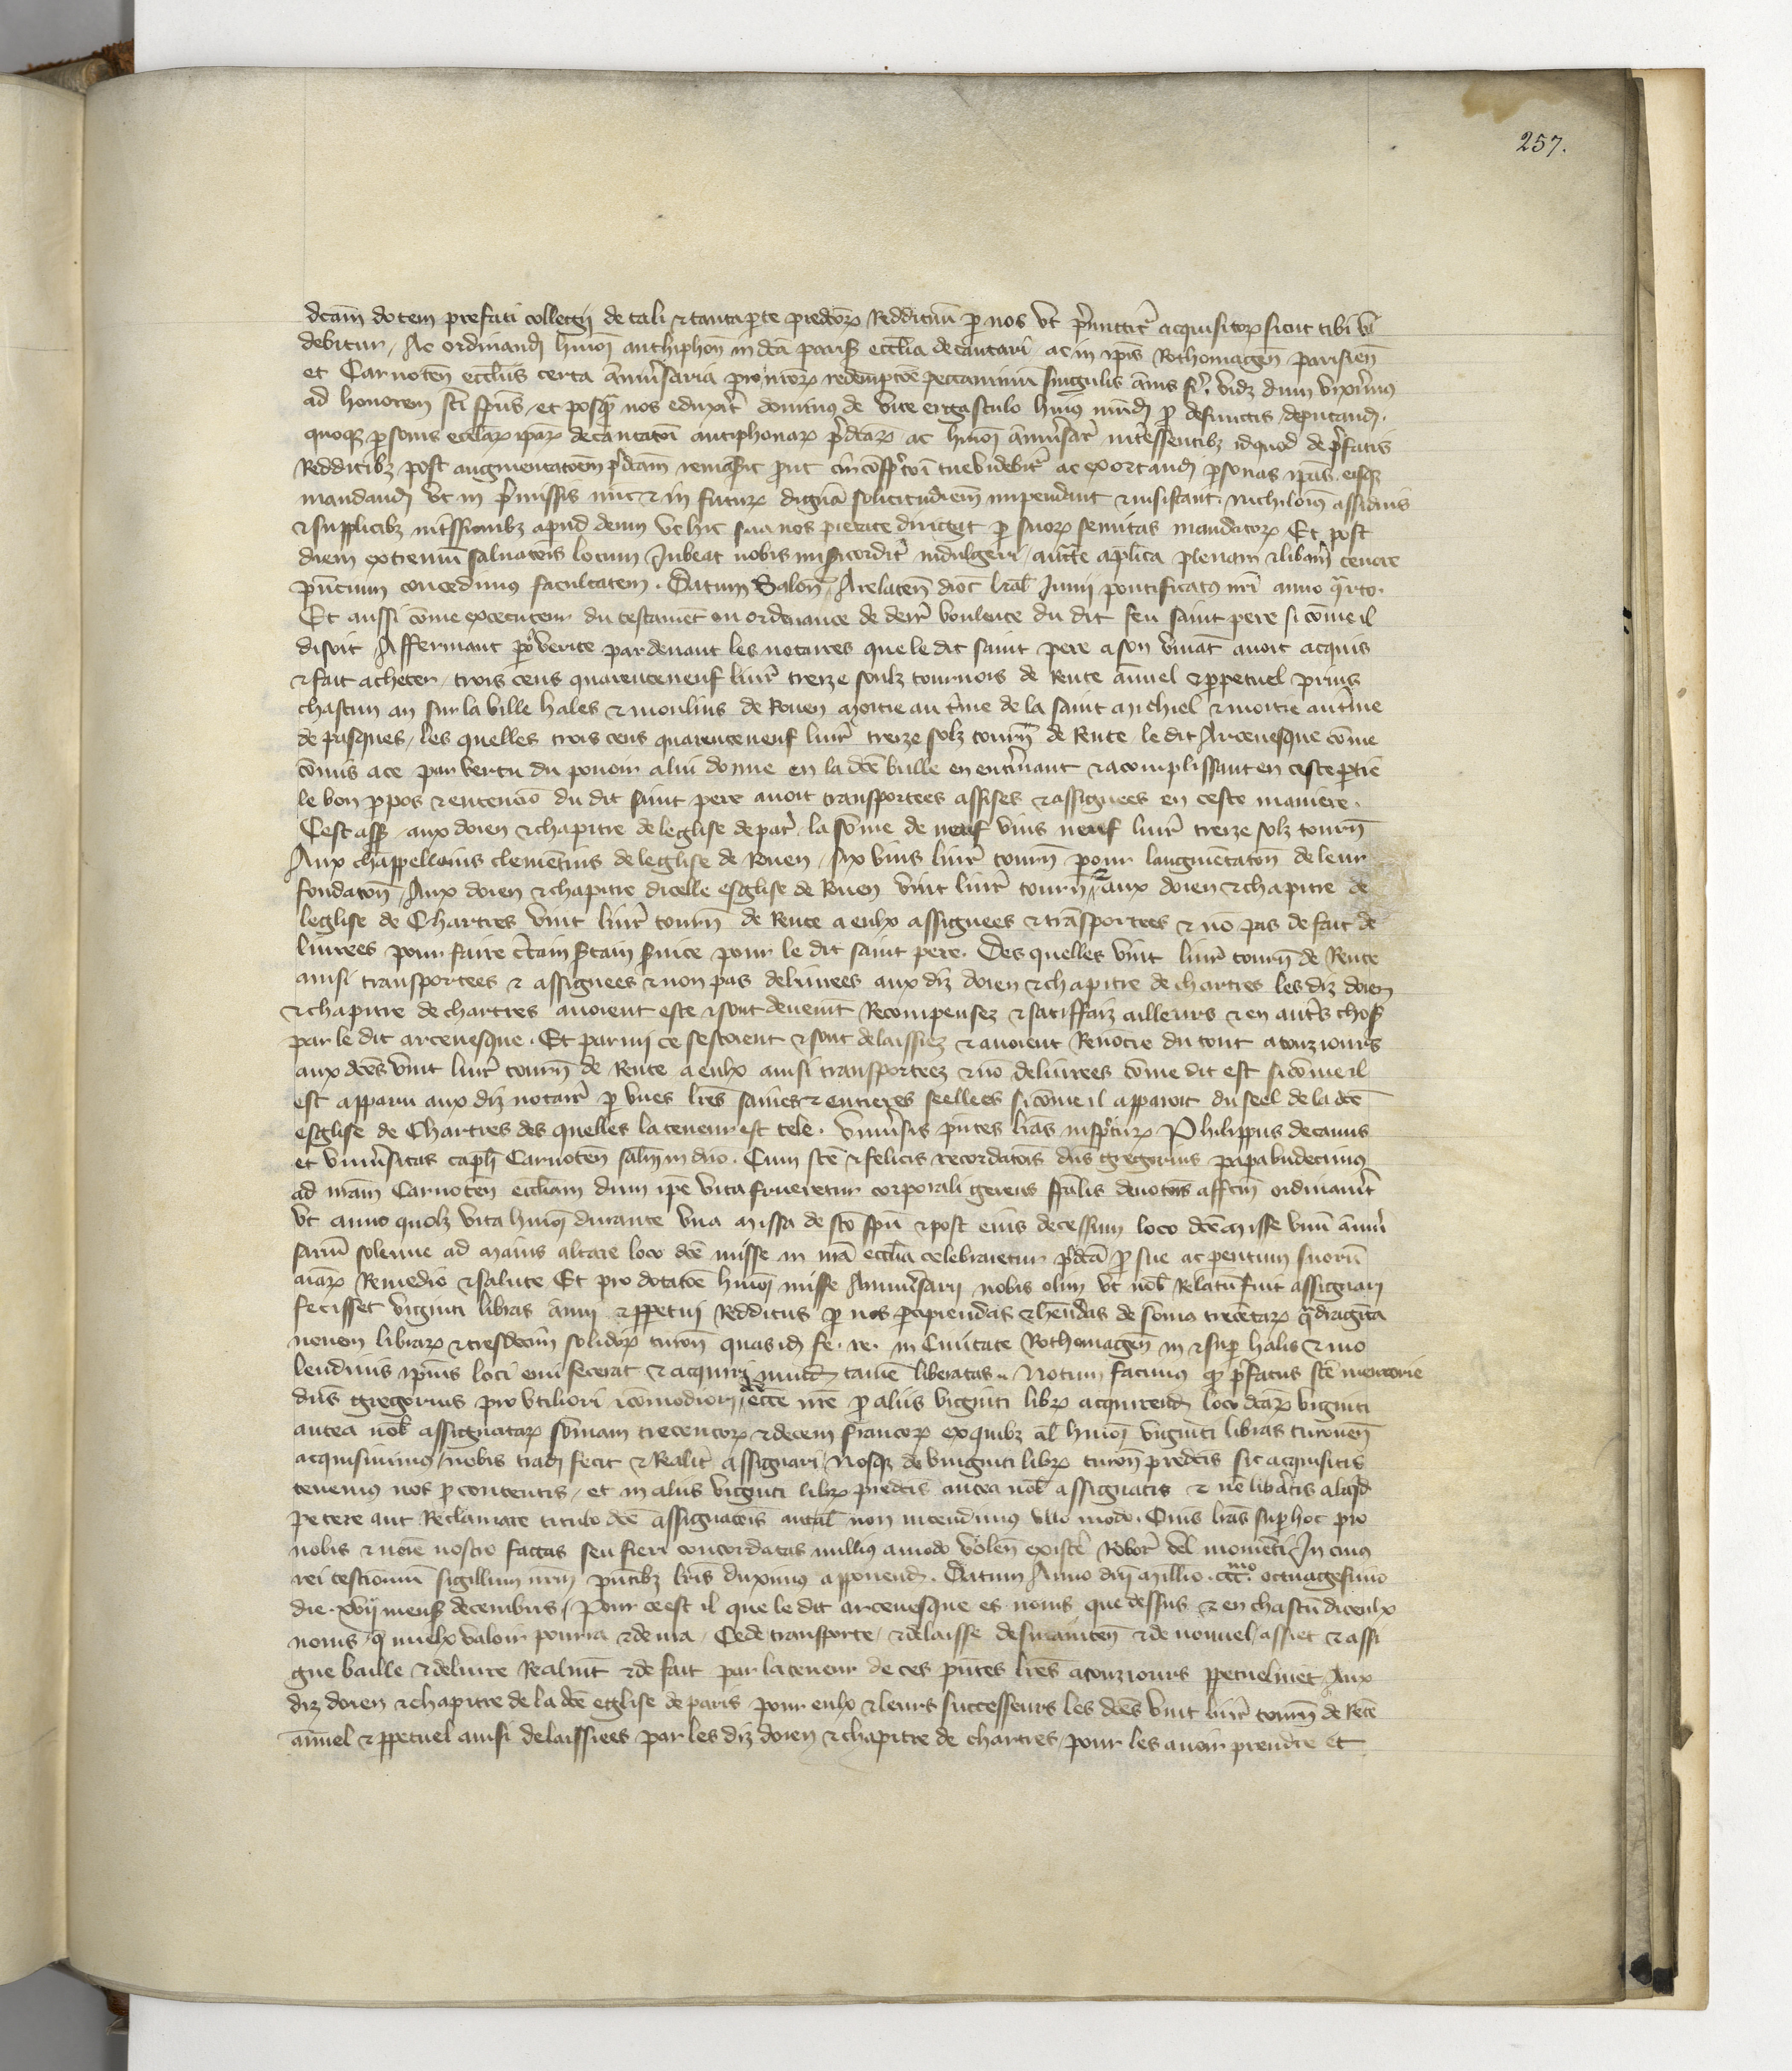 257.
dcam dotem prefati collegij de tali & tanta parte predcorum Reddituum per nos vt premittitur acquisitorum sicut tibi vi
debitur, Ac ordinandi hmoi anthiphonam in dca parisiensi ecclia decantari ac in ipsis Rothomagen parisien
et Carnoten eccliis certa anniuersaria pro nrorum redemptoe peccaminum singulis annis fieri, videlicet dum vixerimus
ad honorem sci spus, et postquam nos eduxerit dominus de vite ergastulo huius mundi pro defunctis, deputandi
quoque personis eccliarum ipsarum decantatoi antiphonarum predcarum ac hmoi anniuersariis interessentibus idquod de prefatis
Redditibus post augmentatoem predcam remanserit prout circonspectoi tue videbitur ac exortandi personas ipsas eisque
mandandi vt in premissis nunc & in futurum dignam solicitudinem impendant & insistant, nichilominus assiduis
& supplicibus intercessionibus apud deum vt hic sua nos pietate dirigat per suorum semitas mandatorum Et post
diem extremum saluatois locum Iubeat nobis misericorditer indulgeri, aucte aplica plenam & liberam tenore
presentium concedimus facultatem. Datum Salon, Arelaten dioc kal Iunii pontificatus nri anno quarto.
Et aussi comme executeur du testament ou ordenance de derr voulente du dit feu saint pere si comme il
disoit Affermant pour verite par deuant les notaires que le dit saint pere a son viuant auoit acquis
& fait acheter, trois cens quarenteneuf liur treize soulz tournois de Rente annuel & perpetuel prins
chascun an sur la ville hales & moulins de Rouen moitie au terme de la saint michiel & moitie au terme
de pasques, les quelles trois cens quarenteneuf liur treize solz tourn de Rente le dit Arceuesque comme
commis a ce par vertu du pouoir a lui donne en la dce bulle en enterinant & acomplissant en ceste partie
le bon propos & entencion du dit saint pere auoit transportees assises & assignees en ceste maniere.
Cest assauoir aux doien & chapitre de leglise de paris la somme de neuf vins neuf liur treize solz tourn
Aux chappellains clementins de leglise de Rouen, six vins liur tourn pour laugmentaton de leur
fondaton, Aux doien & chapitre dicelle esglise de Rouen vint liur tourn, & aux doien & chapitre de
leglise de Chartres vint liur tourn de Rente a eulx assignees & transportees & non pas de fait de
liurees pour faire certain certain seruice pour le dit saint pere. Des quelles vint liur tourn de Rente
ainsi transportees & assignees & non pas deliurees aux diz doien & chapitre de chartres les diz doien
& chapitre de chartres auoient este & sont deuement Recompensez & satiffaiz ailleurs & en autres choses
par le dit arceuesque. Et parmi ce sestoient & sont delaissiez & auoient Renoncie du tout a touziours
aux dces vint liur tourn de Rente a eulx ainsi transportees & non deliurees comme dit est si comme il
est apparu aux diz notaires par vnes lres saines & entieres seellees si comme il apparoit du seel de la dce
esglise de Chartres des quelles la teneur est tele. Vniuersis pntes lras inspecturis Philippus decanus
et vniuersitas capli Carnoten salm in dno. Cum sce & felicis recordatois dns gregorius papa vndecimus
ad nram Carnoten eccliam dum ipe vita frueretur corporali gerens spalis deuotois affcm ordinauerit
vt anno quolz vita hmoi durante vna missa de sco spu & post eius decessum loco dce misse vnum anniuer
sarium solenne ad maius altare loco dce misse in nra ecclia celebraretur predca pro sue ac parentum suorum
aiarum Remedio & salute Et pro dotatoe hmoi misse Anniuersarii nobis olim vt nob Relatum fuit assignari
fecisset viginti libras annui & perpetui Redditus per nos percipiendas & habendas de somma trecentarum quadraginta
nouem librarum & tresdecim solidorum turon quas idem fe. re. in Ciuitate Rothomagen in & super halis & mo
lendinis ipsius loci emi fecerat & acquiri minime tamen liberatas. Notum facimus quod prefatus sce memorie
dns gregorius pro vtiliori & commodiori dce eccle nre pro aliis viginti libris acquirendis loco dcarum viginti
antea nob assignatarum sommam trecentorum & decem francorum ex quibus al hmoi viginti libras turonen
acquisiuimus, nobis tradi fecit & Realiter assignari, Nosque de viginti libris turon predcis sic acquisitis
tenemus nos pro contentis, et in aliis viginti libris predcis antea nob assignatis & non liberatis aliquid
petere aut Reclamare titulo dce assignatois aut al non intendimus vllo modo. Omnes lras super hoc pro
nobis & noie nostro factas seu fieri concordatas nullius amodo volen existere Roboris vel momenti, In cuius
rei testimonium sigillum nrum pntibus lris duximus apponendum. Datum Anno dni millio. ccc.mo octuagesimo
die. xvij mensis decembris, Pour ce est il que le dit arceuesque es noms que dessus & en chascun diceulx
noms que mielx valoir pourra & deura, Cede transporte, & delaisse desmaintenant & de nouuel, assiet & assi
gne baille & deliure Realment & de fait par la teneur de ces pntes lres a touziours perpetuelment, Aux
diz doien & chapitre de la dce esglise de paris pour eulx & leurs successeurs les dces vint liur tourn de Rente
annuel & perpetuel ainsi delaissiees par les diz doien & chapitre de chartres, pour les auoir prendre et